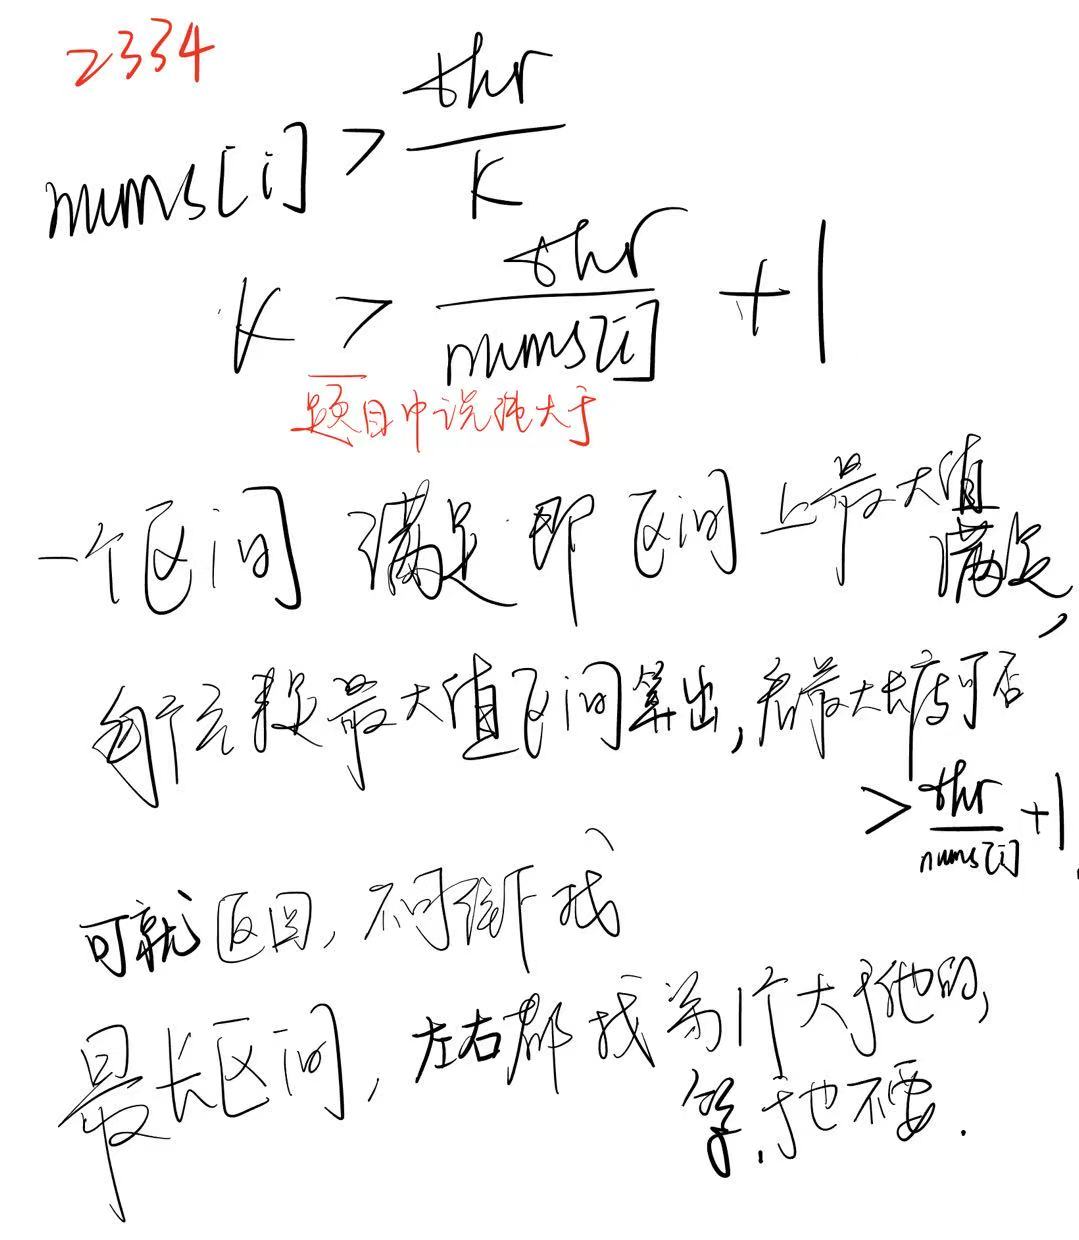 2334
nums[i] > thr / K
K > thr / nums[i] + 1
题目中说强大于
一个区间 满足 即 区间 上最大值
满足,
每个元素是最大值区间算出,看最大长度可否
> thr / nums[i] + 1
可就返回, 不可继续找
最长区间, 左右都找第1个大于他的,
等于也不要.